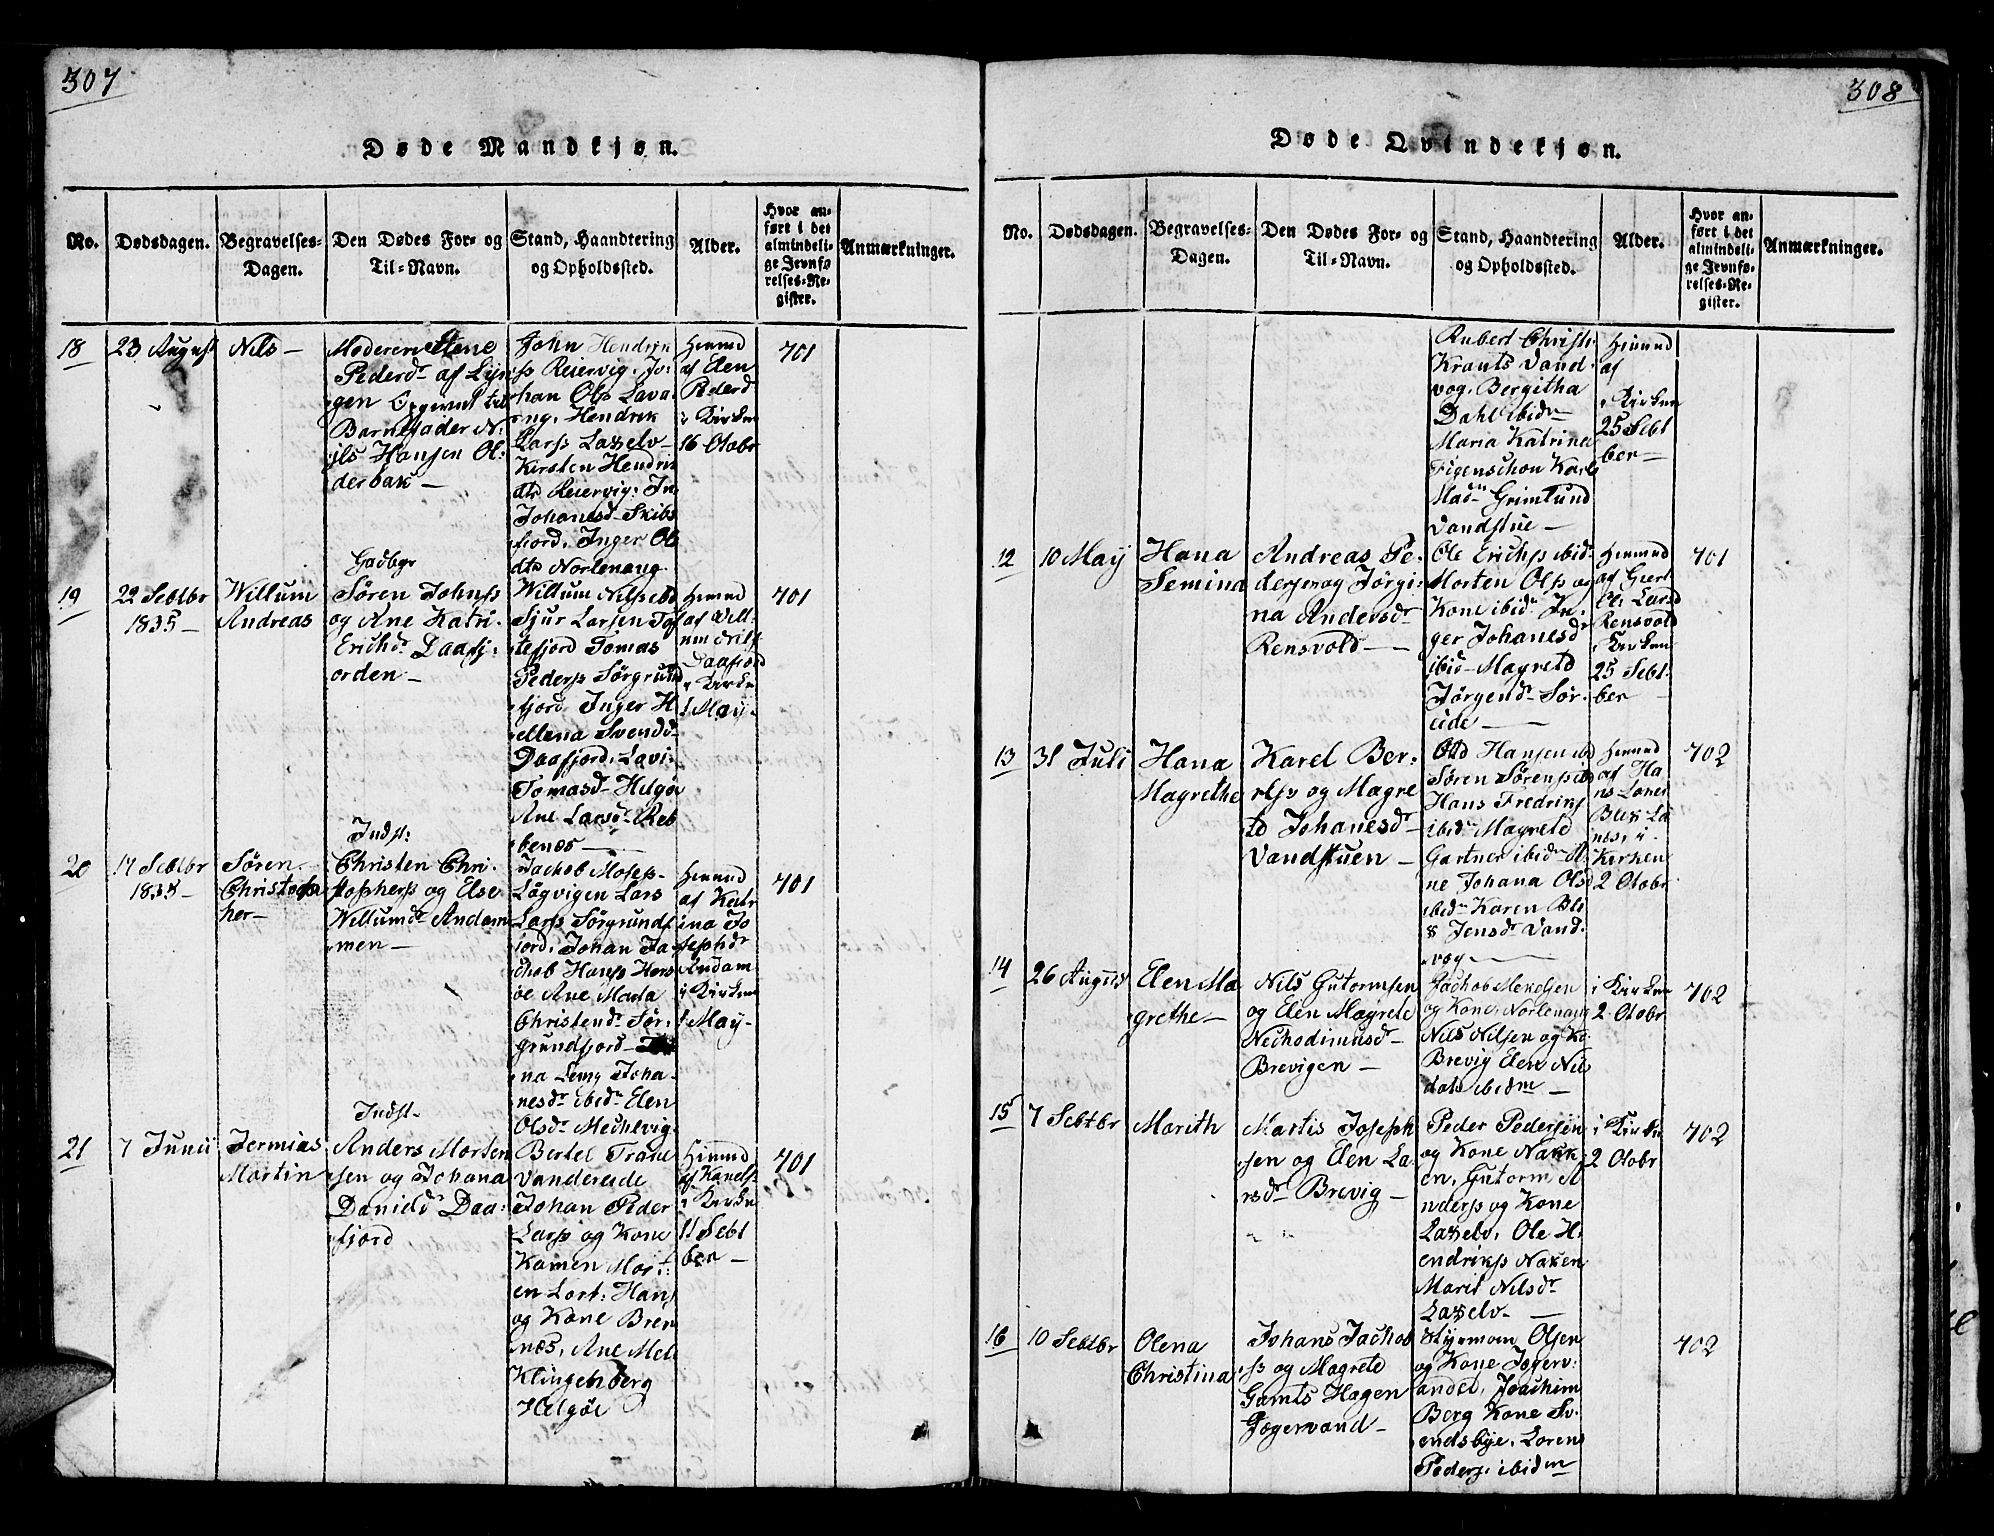 307
Døde Mandkjøn.
No.
Dødsdagen.
Begravelses-
Dagen.
Den Dødes For- og
Til-Navn.
Stand, Haandtering
og Opholdssted.
Alder.
Hvor an-
ført i det
almindeli-
ge Jevnfø-
relses-Re-
gister.
Anmærkninger.
18
23 August
Nils —
Moderen Elene
Pedersd. af Lyn
gen
Barnefader N.
ils Hansen Ol-
derbak —
John Hendrik
ss Reiervig. Jo-
han Olss Lava
ng. Hendrik
Larss Laxelv —
Kirsten Hendri
dtr Reiervig. In
Johanesd. Skibs
fjord. Inger Ol
dtr Norlenang.
Hiemd
af Elen
Pederd
i Kirken
16 Otobr
701
19
22 Sebtbr
1835 —
Willum
Andreas
Gadbgr
Søren Johnss
og Ane Katri-
Erichd. Daafj-
orden —
Willum Nilss ibd
Sjur Larsen Tof
tefjord Tomas
Pederss Sørgrund
fjord. Inger H
ellena Svendd.
Daafjord. Lavi-
Tomasd. Helgøe
Ane Larsd. Reb
benæs —
Hiemd
af Will
um Nilss
Daafjord
i Kirken
1 May.
701
20
17 Sebtbr
1835 —
Søren
Christoph
her —
Indst:
Christen Chri-
stopherss og Else
Willumd. Andam
men —
Jachob Moses-
Løgvigen Lars
Larss Sørgrundf
jord. Johan Ja-
chob Hanss Hers
øe Ane Marta
Christend. Sør-
grundfjord —
na Leny Joha-
nesd. ibid. Elen
Olsd. Mechlvig.
Hiemd
af Katr
ina Jo
sephdr
Andam
i Kirken
1 May —
701
21
7 Junij
Jermias
Martin
Indst.
Anders Morten
sen og Johana
Danield. Daa-
fjord
Bertel Trane
Vandereide
Johan Peder
Larss og Kone
Kamen Mort-
en Lort: Hans
og Kone Bren
næs, Ane Mel.
Klingenberg
Helgøe
Hiemd
af Karels
i Kirken
11 Sebt
ber —
701
308
Døde Qvindekjøn.
No.
Dødsdagen.
Begravelses-
Dagen.
Den Dødes For- og
Til-Navn.
Stand, Haandtering
og Opholdssted.
Alder.
Hvor an-
ført i det
almindeli-
ge Jevnfø-
relses-Re-
gister.
Anmærkninger.
Rubert Christi
Krants Vand-
vog. Bergitha
Dahl ibid.
Maria Katrina
Figenschou Karls
Mad. Grimlund
Vandstue —
Hiemd
af
i Kirken
25 Sebt
ber —
12
10 May
Hana
Semina
Andreas Pe-
dersen og Jørgi-
na Andersd.
Rensvold —
Ole Erichss ibid.
Morten Olss og
Kone ibid. In-
ger Johanesd.
ibid — Magretd
Jørgend. Sør-
eide —
Hiemd
af Giert
Eli Larsd
Rensvold
i Kirken
25 Sebt-
ber —
701
13
31 Juli
Hana
Magrethe
Karel Ber-
elss og Magre
td Johanesd.
Vandstuen —
Old Hansen ibd
Søren Sørenss ibd
Hans Fredriks
ibid. Magretd
Gartner ibidm A-
ne Johana Olsd
ibidm Karen Bli
x Jensd. Vand-
vog —
Hiemd
af Ha
ns Lorne
Blix La
næs. i
Kirken
2 Otobr
702
14
26 August
Elen Ma
grethe —
Nils Gutormsen
og Elen Magrete
Nechodimusd.
Brevigen —
Jachob Mekelsen
og Kone. Norlenang
Nils Nilsen og Ko
Brevig Elen Nil
datr ibidm —
i Kirken
2 Otobr
702
15
7 Sebtbr
Marith
Martis Joseph
sen og Elen La-
rsd. Brevig —
Peder Pedersen
og Kone Nakk
en, Gutorm A
nderss og Kone
Laxelv. Ole H-
endrikss Naken
Marit Nilsd.
Laxelv —
i Kirken
2 Otobr
702
16
10 Sebtbr
Olena
Christina
Johans Jachob
ss og Magrete
Gamts Hagen
Jøgervand —
Styrman Olsen
og Kone Jøgerv-
andet, Joachim
Berg Kone Sv-
endsbye. Lorens
Pederss. ibidm
702